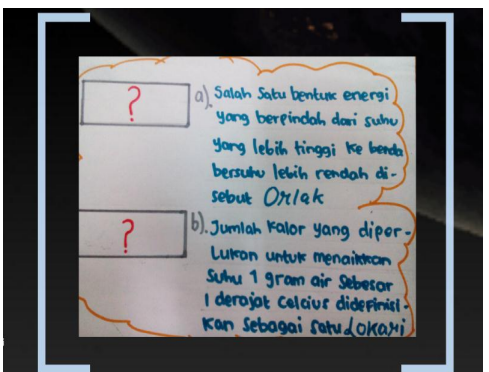 ?
a). Salah Satu bentuk energi
yang berpindah dari suhu
yang lebih tinggi ke benda
bersuhu lebih rendah di-
sebut Orlak
?
b). Jumlah kalor yang diper-
Lukan untuk menaikkan
Suhu 1 gram air Sebesar
1 derajat Celcius didefinisi-
kan Sebagai satu Lokari